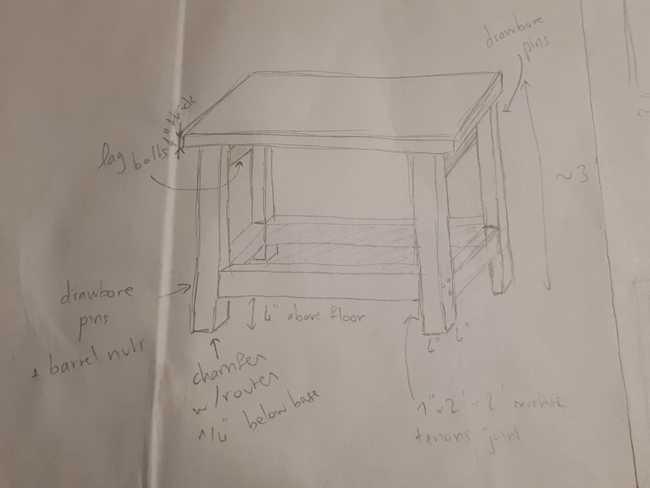 drawbore
pins
1" thick
lag bolts
~3'
drawbore
pins
+ barrel nuts
4" above floor
chamfer
w/router
1/4" below base
4" 4"
1" x 2" x 2"
tenons joint